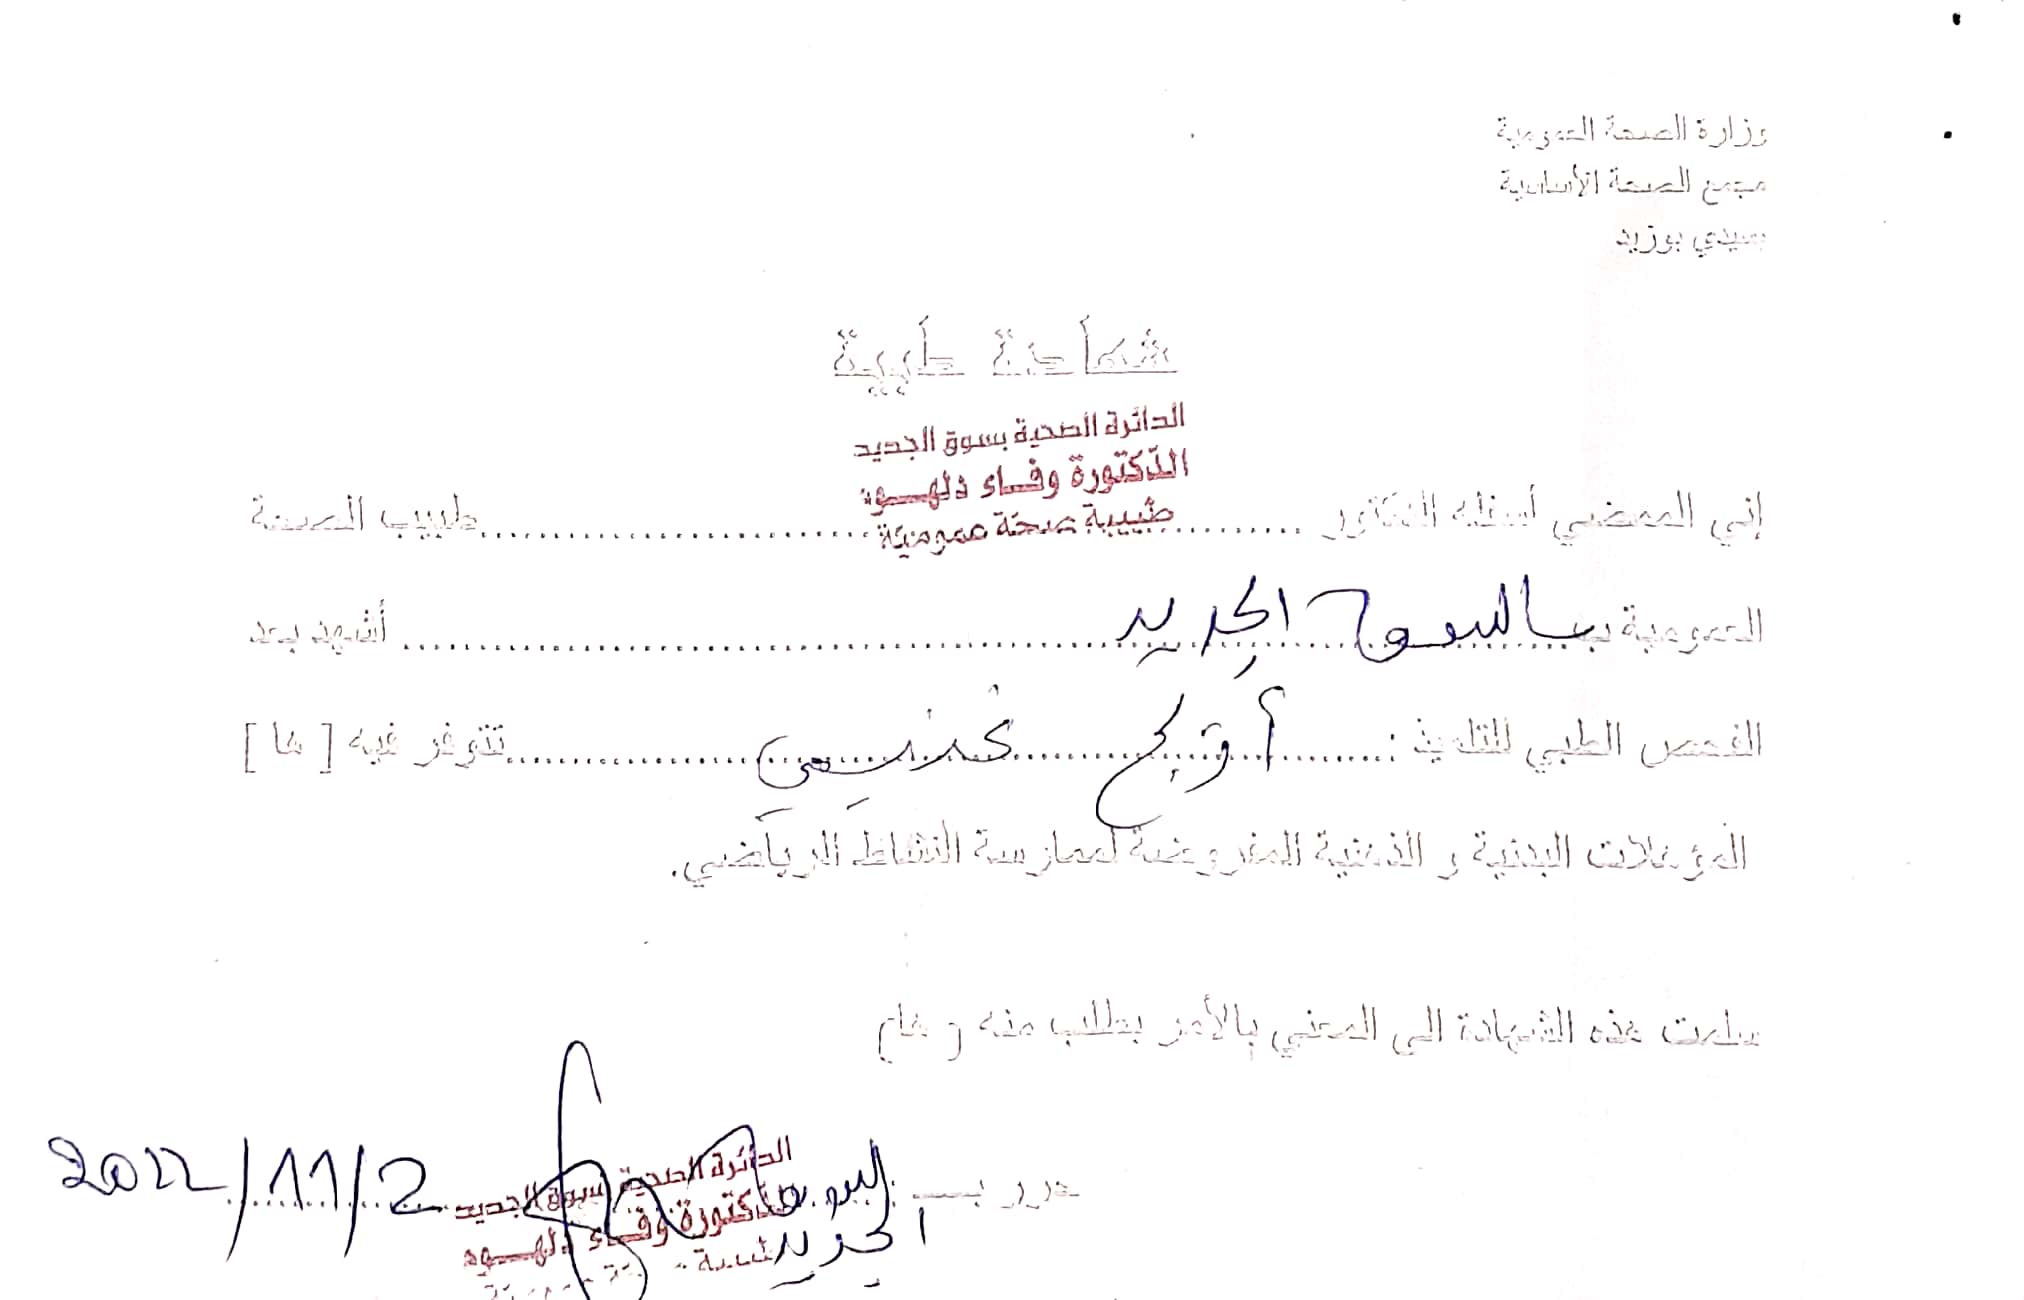 وزارة الصحة العمومية
مجمع الصحة الأساسية
بسيدي بوزيد
شهادة طبية
الدائرة الصحية بسوق الجديد
الدّكتورة وفاء دلهـــوم
طبيبة صحة عمومية
إني الممضي أسفله الدكتور .......... طبيب الصحة
العمومية بـ بالسوق الجديد .......... أشهد بعد
الفحص الطبي للتلميذ : .......... تتوفر فيه [ ها ]
المؤهلات البدنية و الذهنية المفروضة لممارسة النشاط الرياضي.
سلمت هذه الشهادة الى المعني بالأمر بطلب منه ( ها)
حرر بـ السوق الجديد 2022/11/2
الدائرة الصحية بسوق الجديد
الدّكتورة وفاء دلهـــوم